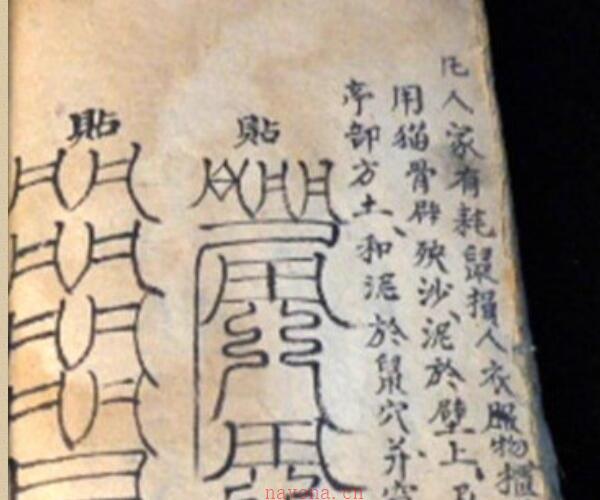 凡人家有耗鼠損人衣服物
用猫骨辟殃沙、泥於壁上、
亭部方土、和泥於鼠穴并
貼
貼
nayona.cn